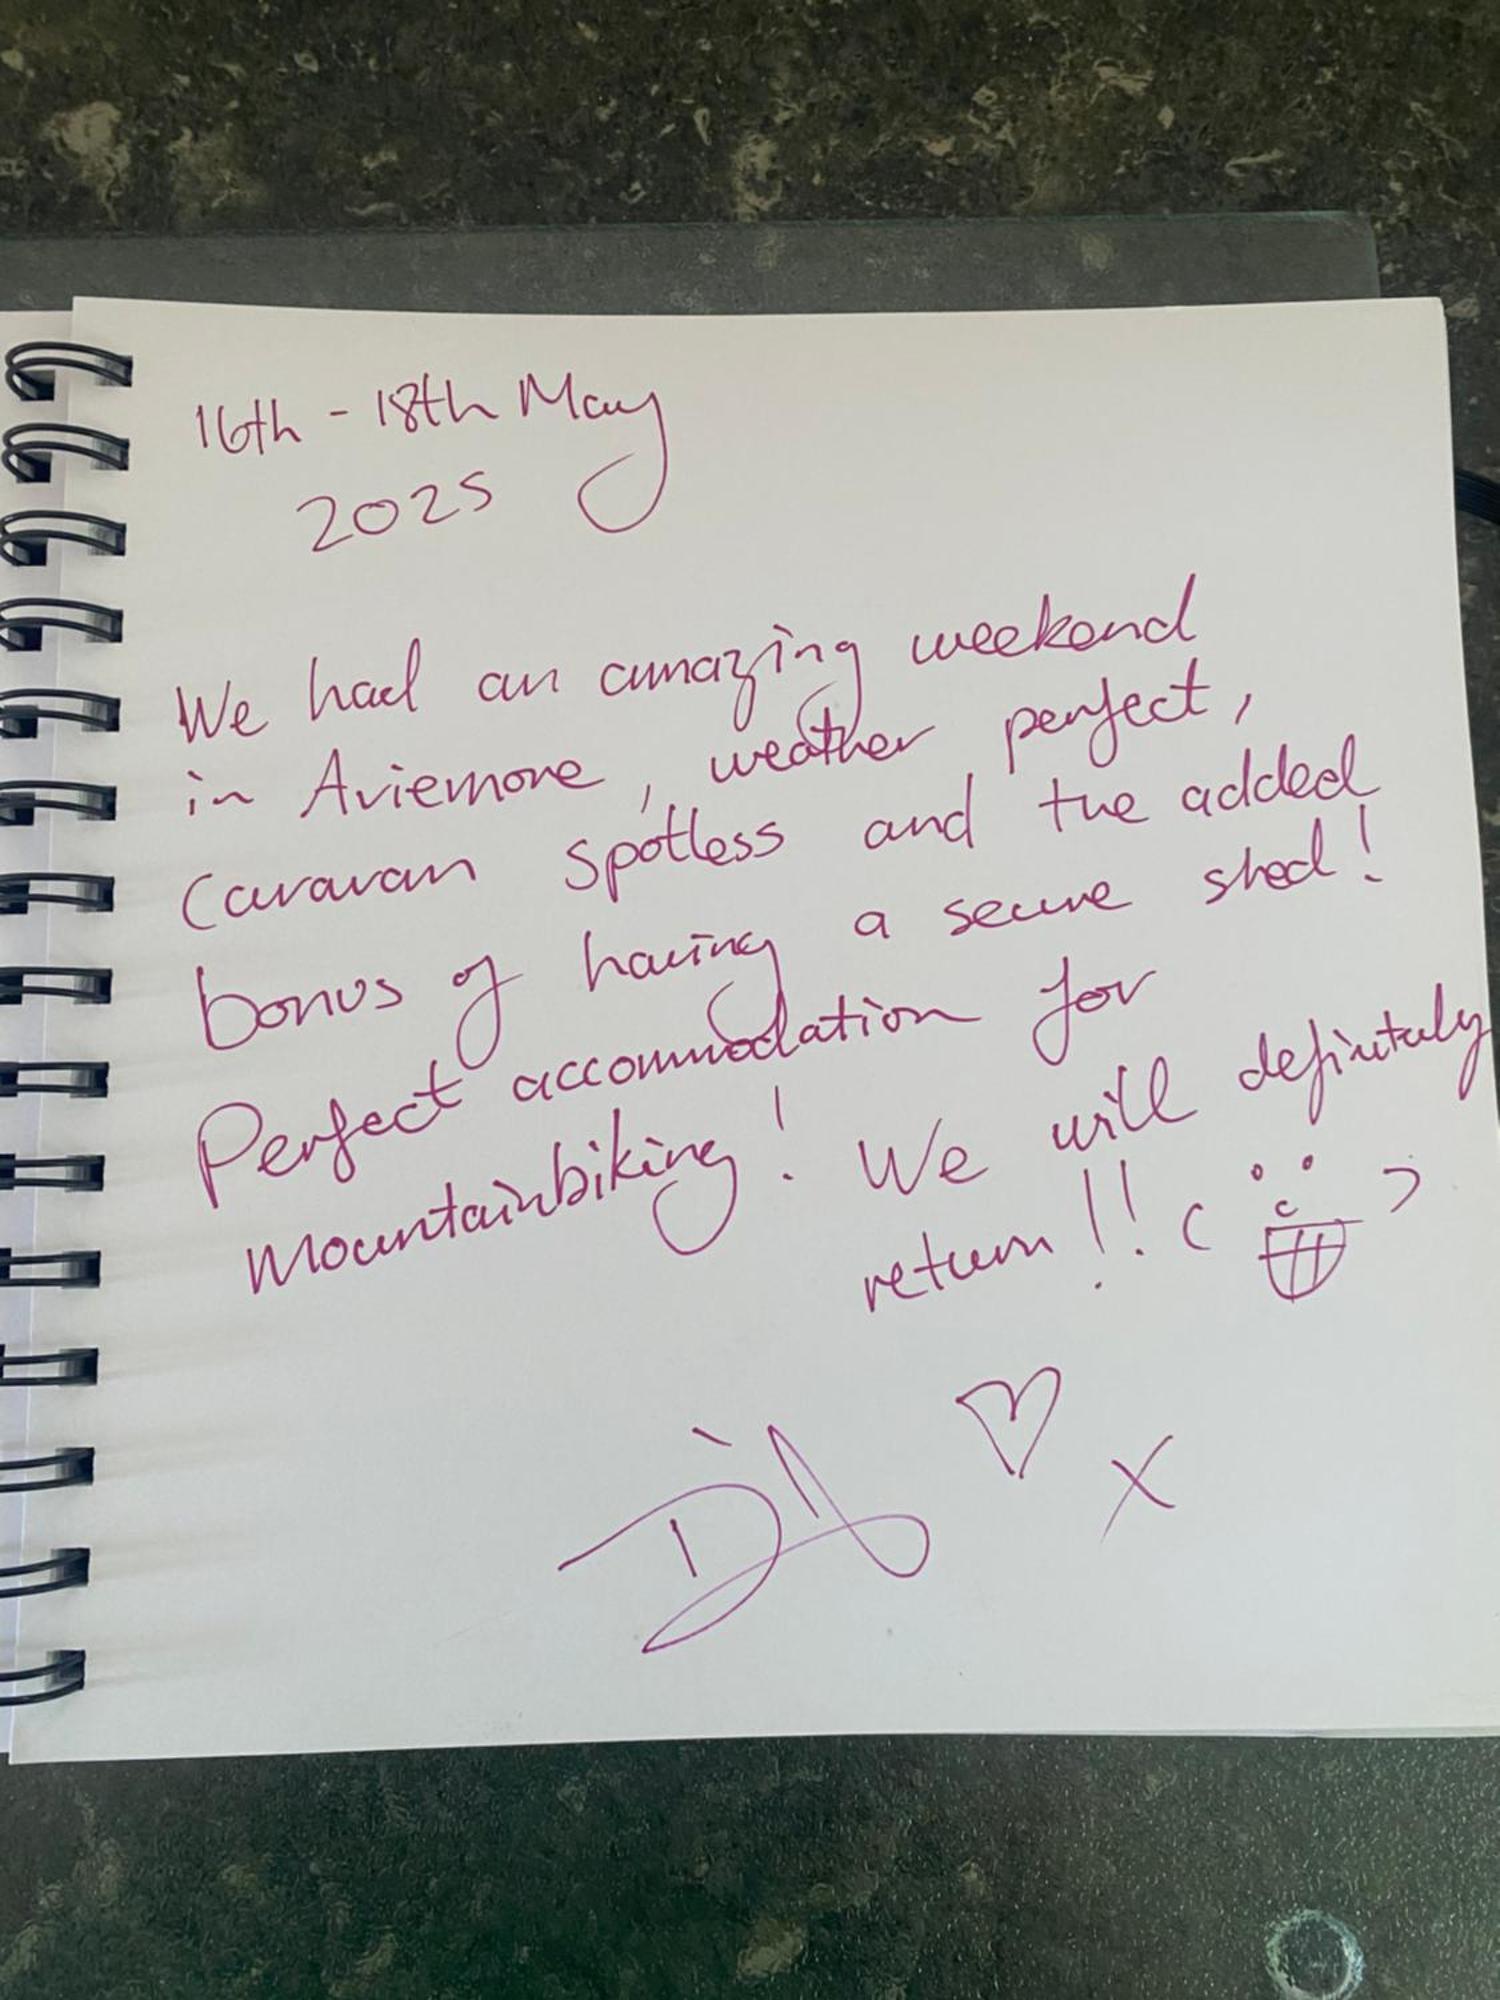 16th - 18th May
2025
We had an amazing weekend
in Aviemore, weather perfect,
caravan spotless and the added
bonus of having a secure shed!
Perfect accommodation for
mountainbiking! We will definitely
return!!
x